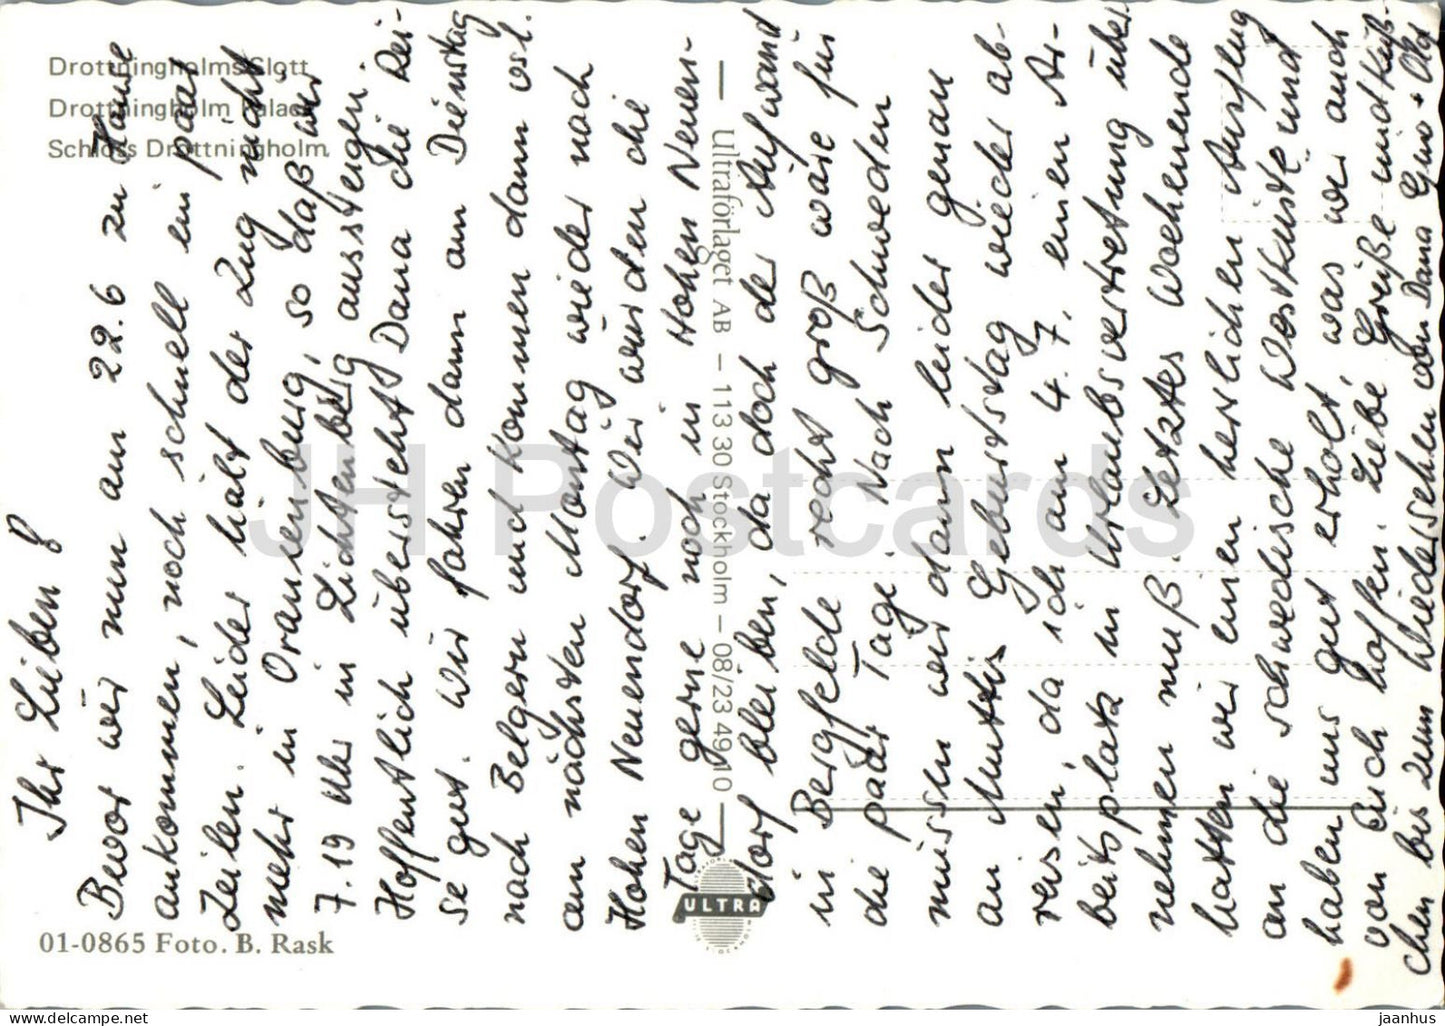 Drottningholms Slott
Drottningholm Palace
Schloss Drottningholm
Ihr Lieben!
Bevor wir nun am 22.6 zu Hause
ankommen, noch schnell ein paar
Zeilen. Leider hält der Zug nicht
mehr in Oranienburg, so daß wir
7.19 Uhr in Lichtenberg aussteigen.
Hoffentlich übersteht Dana die Rei-
se gut. Wir fahren dann am Dienstag
nach Belgern und kommen dann vorl.
am nächsten Montag wieder nach
Hohen Neuendorf. Wir würden die
Tage gerne noch in Hohen Neuen-
dorf bleiben, da doch der Aufwand
in Bergfelde recht groß wäre für
die paar Tage. Nach Schweden
müssen wir dann leider genau
an Muttis Geburtstag wieder ab-
reisen, da ich am 4.7. einen Ar-
beitsplatz in Urlaubsvertretung über-
nehmen muß. Letztes Wochenende
hatten wir einen herrlichen Ausflug
an die schwedische Westküste und
haben uns gut erholt, was wir auch
von Euch hoffen. Liebe Grüße und Küß-
chen bis zum Wiedersehen von Dana Gino +
Ultraförlaget AB – 113 30 Stockholm – 08/23 49 10
ULTRA
01-0865 Foto. B. Rask
JH Postcards
jaanhus